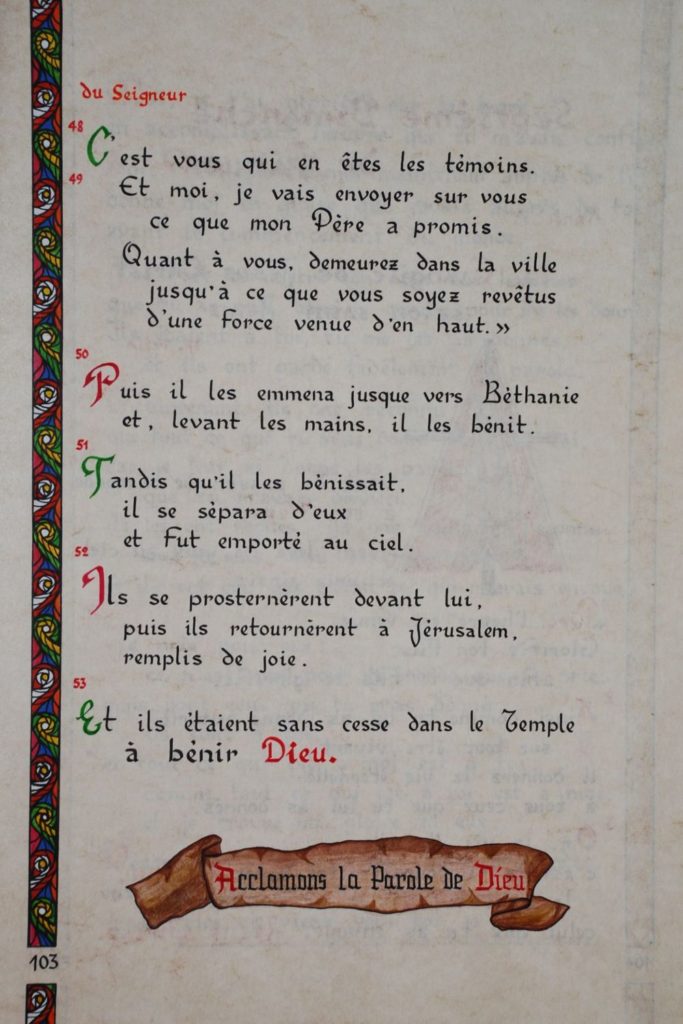 du Seigneur
48
C'est vous qui en êtes les témoins.
49
Et moi, je vais envoyer sur vous
ce que mon Père a promis.
Quant à vous, demeurez dans la ville
jusqu'à ce que vous soyez revêtus
d'une force venue d'en haut.»
50
Puis il les emmena jusque vers Béthanie
et, levant les mains, il les bénit.
51
Tandis qu'il les bénissait,
il se sépara d'eux
et fut emporté au ciel.
52
Ils se prosternèrent devant lui,
puis ils retournèrent à Jérusalem,
remplis de joie.
53
Et ils étaient sans cesse dans le Temple
à bénir Dieu.
Acclamons la Parole de Dieu
103